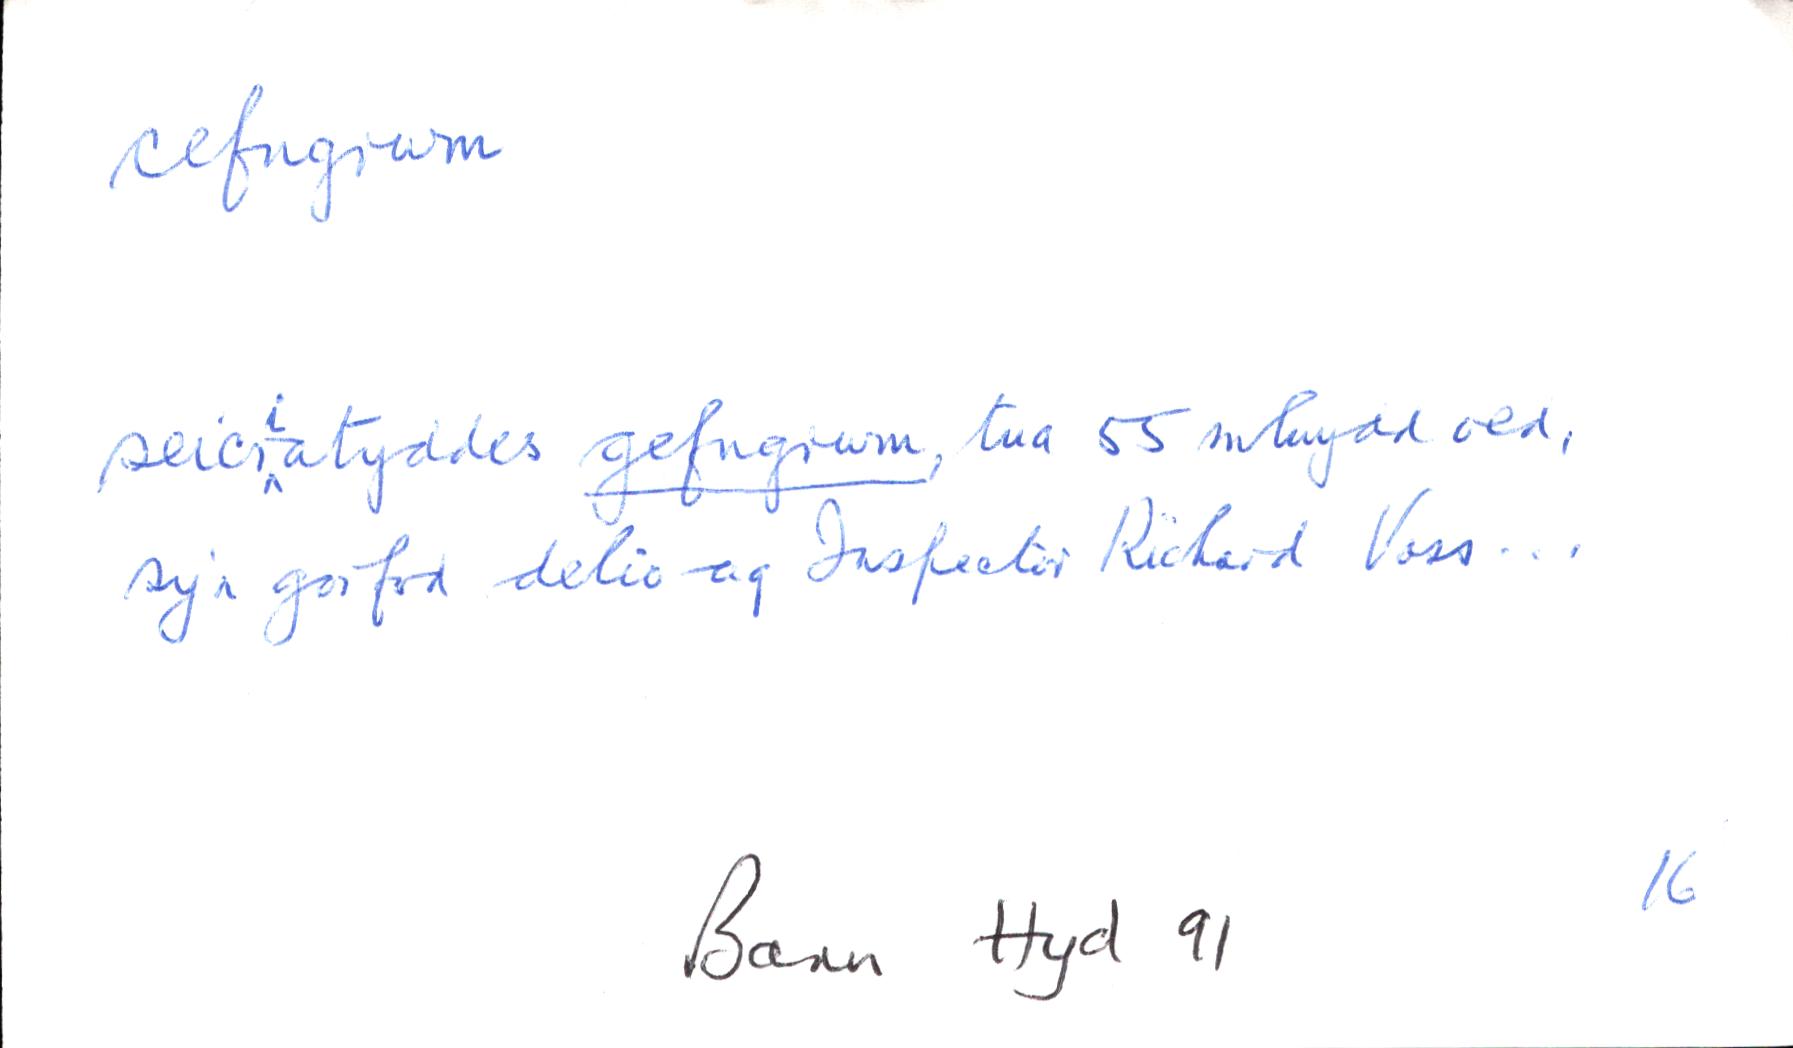 cefngrwm
seiciatyddes gefngrwm, tua 55 mlwydd oed,
sy'n gorfod delio ag Inspector Richard Voss...
16
Barn Hyd 91